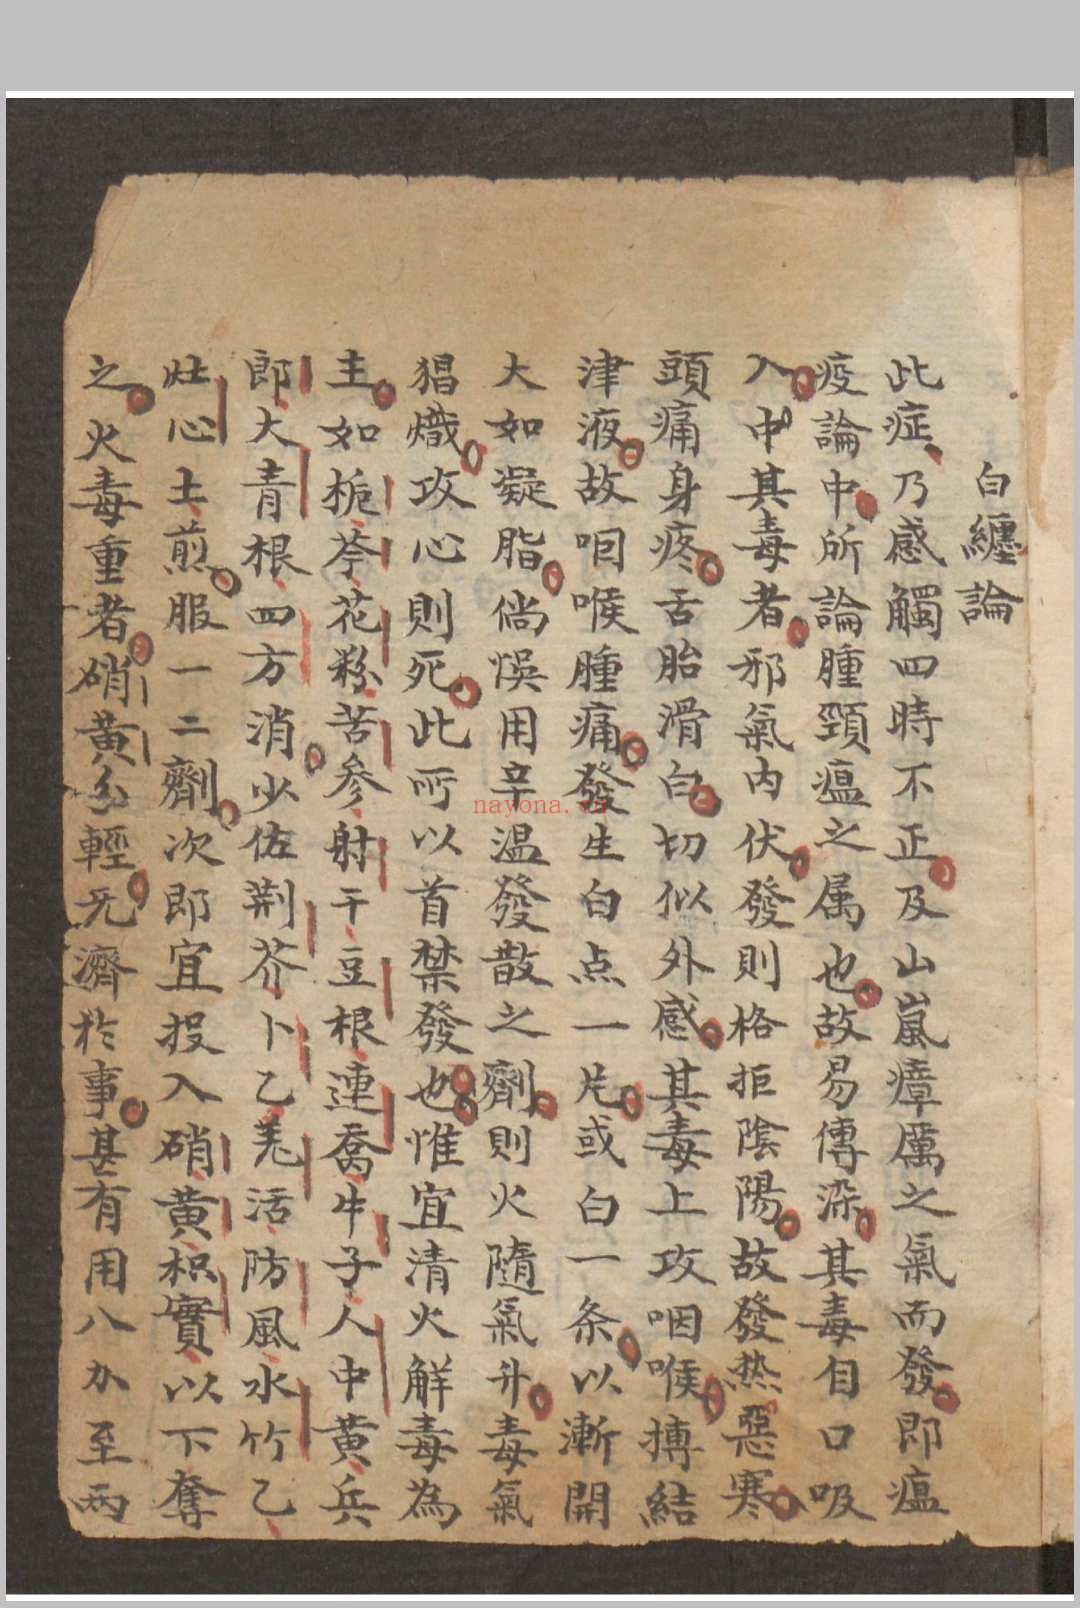 白纏論
此症乃感觸四時不正及山嵐瘴厲之氣而發即瘟
疫論中所論腫頸瘟之属也故易傳染其毒自口吸
入中其毒者邪氣内伏發則格拒陰陽故發热惡寒
頭痛身疼舌胎滑白切似外感其毒上攻咽喉搏結
津液故咽喉腫痛發生白点一片或白一条以漸開
大如凝脂倘悞用辛温發散之劑則火隨氣升毒氣
猖熾攻心則死此所以首禁發也惟宜清火解毒為
主如栀芩花粉苦参射干豆根連喬牛子人中黄兵
郎大青根四方消少佐荆芥卜乙羌活防風水竹乙
灶心土煎服一二劑次即宜投入硝黄枳實以下奪
之火毒重者硝黄分輕无濟於事甚有用八分至兩
nayona.cn